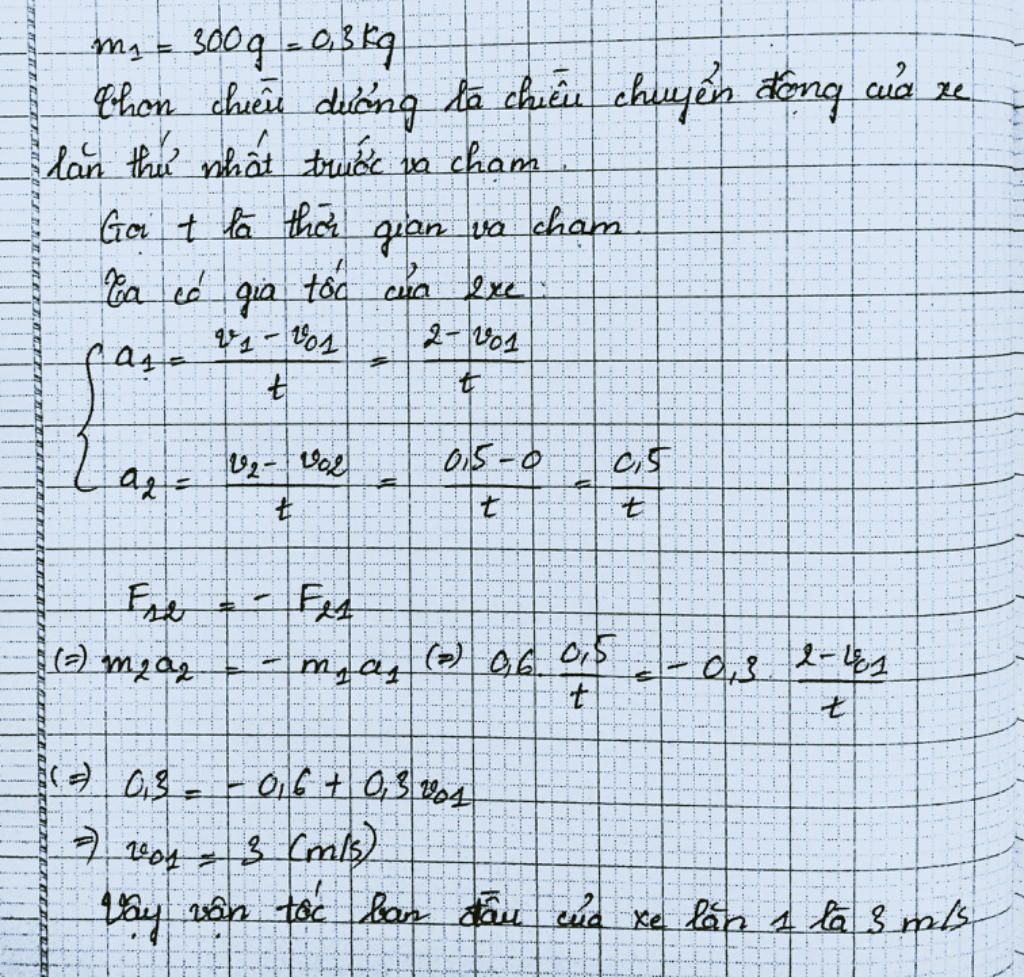 m₁ = 300g = 0,3kg
Chọn chiều dương là chiều chuyển động của xe
lăn thứ nhất trước va chạm.
Gọi t là thời gian va chạm.
Ta có gia tốc của 2 xe:
a₁ = (v₁ - v₀₁)/t = (2 - v₀₁)/t
a₂ = (v₂ - v₀₂)/t = (0,5 - 0)/t = 0,5/t
F₁₂ = - F₂₁
(=) m₂a₂ = - m₁a₁ (=) 0,6. 0,5/t = - 0,3. (2 - v₀₁)/t
(=) 0,3 = - 0,6 + 0,3v₀₁
=) v₀₁ = 3 (m/s)
Vậy vận tốc ban đầu của xe lăn 1 là 3 m/s